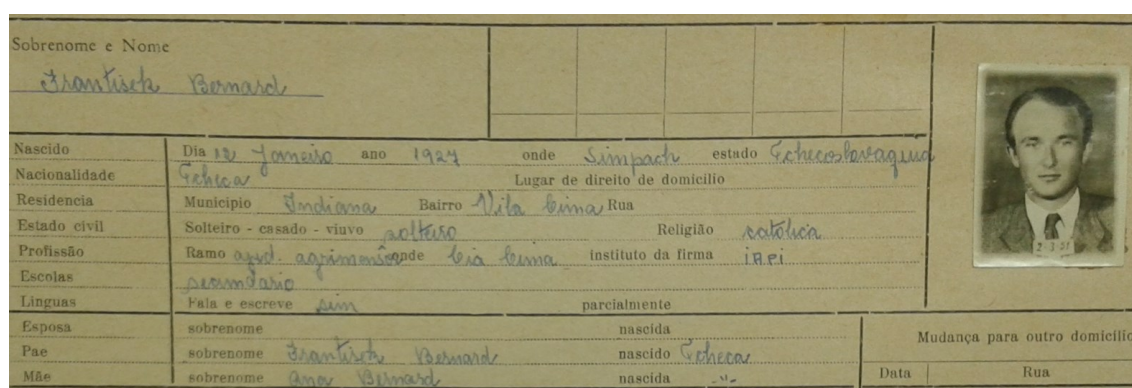 Sobrenome e Nome
Frantisek Bernard
Nascido Dia 12 Janeiro ano 1927 onde Simpach estado Tchecoslovaquia
Nacionalidade Tcheca Lugar de direito de domicilio
Residencia Municipio Indiana Bairro Vila Cima Rua
Estado civil Solteiro - casado - viuvo solteiro Religião catolica
Profissão Ramo ajud. agrimensor onde Cia Cima instituto da firma IAPI
Escolas secundario
Linguas Fala e escreve sim parcialmente
Esposa sobrenome nascida
Pae sobrenome Frantisek Bernard nascido Tcheca
Mãe sobrenome Ana Bernard nascida -"-
Mudança para outro domicilio
Data Rua